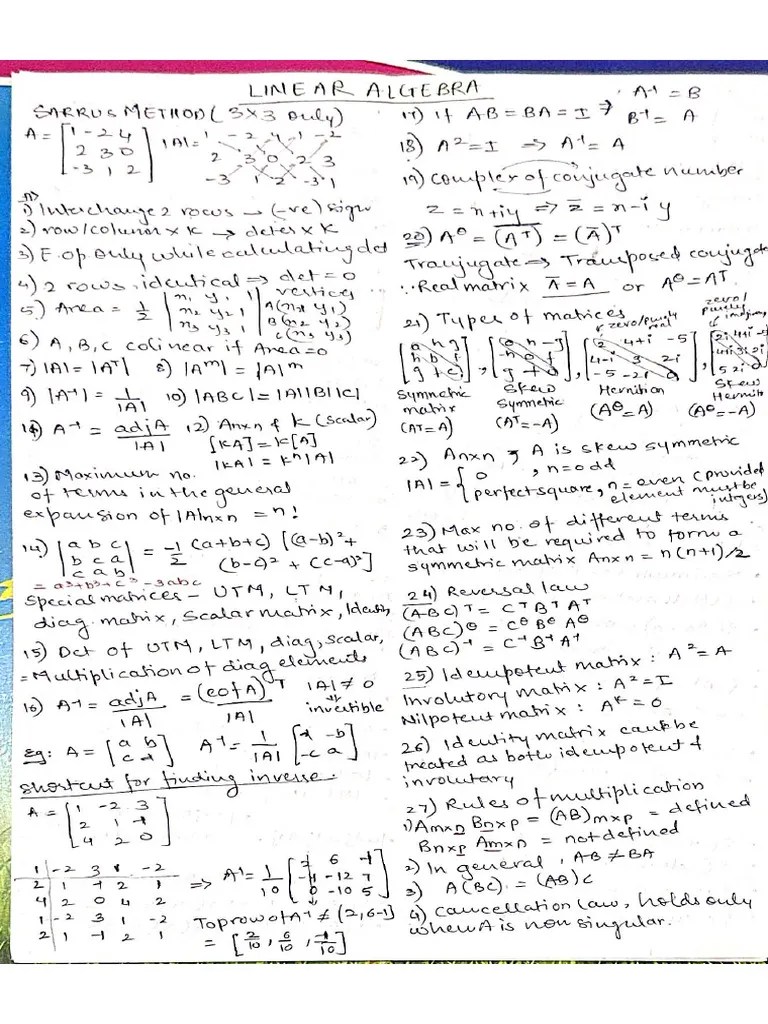 LINEAR ALGEBRA
SARRUS METHOD (3X3 only)
A = [1 -2 4
2 3 0
-3 1 2] |A| = 1 -2 4 1 -2
2 3 0 2 3
-3 1 2 -3 1
1) Interchange 2 rows → (-ve) sign
2) row/column x K → deter x K
3) E.op only while calculating det
4) 2 rows identical ⇒ det = 0
5) Area = 1/2 |x1 y1 1
x2 y2 1
x3 y3 1| vertices
A(x1 y1)
B(x2 y2)
C(x3 y3)
6) A, B, C colinear if Area = 0
7) |A| = |Aᵀ| 8) |Aᵐ| = |A|ᵐ
9) |A⁻¹| = 1/|A| 10) |ABC| = |A||B||C|
11) A⁻¹ = adjA/|A| 12) Anxn & K (scalar)
[KA] = K[A]
|KA| = Kⁿ|A|
13) Maximum no.
of terms in the general
expansion of |A|nxn = n!
14) |a b c
b c a
c a b| = -1/2 (a+b+c) [(a-b)² +
(b-c)² + (c-a)²]
= a³+b³+c³-3abc
Special matrices - UTM, LTM,
diag. matrix, Scalar matrix, Identity
15) Det of UTM, LTM, diag, scalar,
= Multiplication of diag elements
16) A⁻¹ = adjA/|A| = (cof A)ᵀ/|A| |A| ≠ 0
invertible
Eg: A = [a b
c d] A⁻¹ = 1/|A| [d -b
-c a]
Shortcut for finding inverse.
A = [1 -2 3
2 1 -1
4 2 0]
1 -2 3 1 -2
2 1 -1 2 1
4 2 0 4 2
1 -2 3 1 -2
2 1 -1 2 1
⇒ A⁻¹ = 1/10 [2 6 -1
-4 -12 7
0 -10 5]
Top row of A⁻¹ ≠ (2, 6 -1]
= [2/10, 6/10, -1/10]
17) If AB = BA = I ⇒ A⁻¹ = B
B⁻¹ = A
18) A² = I ⇒ A⁻¹ = A
19) Complex of conjugate number
z = x+iy ⇒ z̅ = x-iy
20) Aᶿ = (A̅ᵀ) = (A̅)ᵀ
Tranjugate ⇒ Transposed conjugate
∵ Real matrix A̅ = A or Aᶿ = Aᵀ
21) Types of matrices
zero/purely
real
zero/
purely
imaginary
[a h g
h b f
g f c], [0 h -g
-h 0 f
g -f 0], [2 4+i -5
4-i 3 2i
-5 -2i 0],
Symmetric
matrix
(Aᵀ = A)
Skew
Symmetric
(Aᵀ = -A)
Hermition
(Aᶿ = A)
Skew
Hermition
(Aᶿ = -A)
22) Anxn & A is skew symmetric
|A| = { 0, n = odd
perfect square, n = even (provided
element must be
intgers)
23) Max no. of different terms
that will be required to form a
symmetric matrix Anxn = n(n+1)/2
24) Reversal law
(ABC)ᵀ = CᵀBᵀAᵀ
(ABC)ᶿ = CᶿBᶿAᶿ
(ABC)⁻¹ = C⁻¹B⁻¹A⁻¹
25) Idempotent matrix : A² = A
Involutory matrix : A² = I
Nilpotent matrix : Aᴷ = 0
26) Identity matrix can be
treated as both idempotent &
involutary
27) Rules of multiplication
1) Amxn Bnxp = (AB)mxp = defined
Bnxp Amxn = not defined
2) In general, AB ≠ BA
3) A(BC) = (AB)C
4) Cancellation law, holds only
when A is non singular.